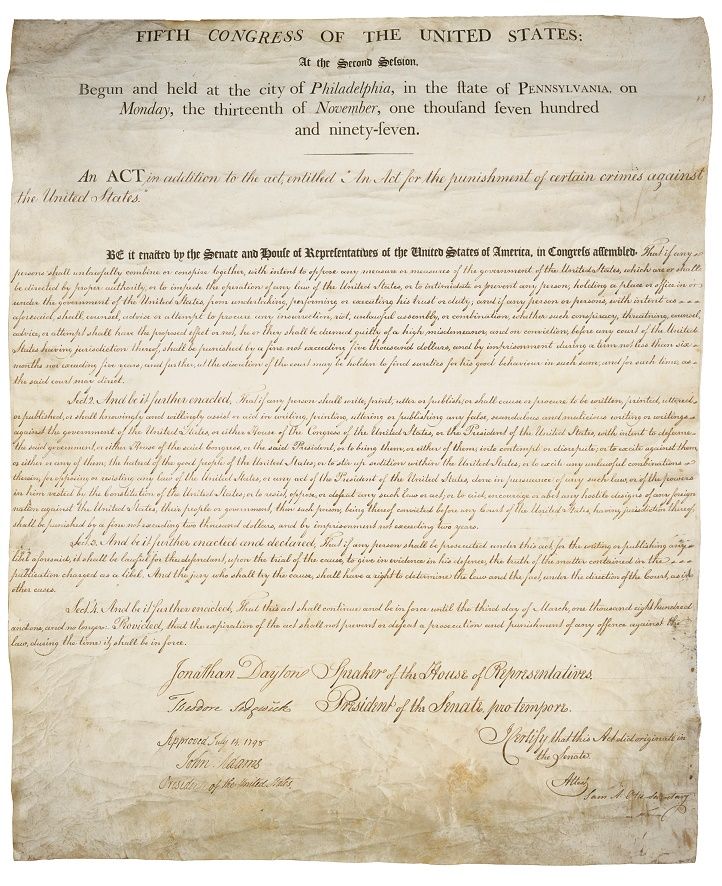 FIFTH CONGRESS OF THE UNITED STATES:
At the Second Seſsion,
Begun and held at the city of Philadelphia, in the ſtate of PENNSYLVANIA, on
Monday, the thirteenth of November, one thouſand ſeven hundred
and ninety-ſeven.
An ACT in addition to the act, entitled "An Act for the punishment of certain crimes against
the United States."
BE it enacted by the Senate and Houſe of Repreſentatives of the United States of America, in Congreſs aſsembled, That if any
persons shall unlawfully combine or conspire together, with intent to oppose any measure or measures of the government of the United States, which are or shall
be directed by proper authority, or to impede the operation of any law of the United States, or to intimidate or prevent any person, holding a place or office in or
under the government of the United States, from undertaking, performing or executing his trust or duty; and if any person or persons, with intent as
aforesaid, shall counsel, advise or attempt to procure any insurrection, riot, unlawful assembly, or combination, whether such conspiracy, threatning, counsel,
advice, or attempt shall have the proposed effect or not, he or they shall be deemed guilty of a high misdemeanor, and on conviction, before any court of the United
States having jurisdiction thereof, shall be punished by a fine not exceeding five thousand dollars, and by imprisonment during a term not less than six
months nor exceeding five years; and further, at the discretion of the court may be holden to find sureties for his good behaviour in such sum, and for such time, as
the said court may direct.
Sect. 2. And be it further enacted, That if any person shall write, print, utter or publish, or shall cause or procure to be written, printed, uttered
or published, or shall knowingly and willingly assist or aid in writing, printing, uttering or publishing any false, scandalous and malicious writing or writings
against the government of the United States, or either House of the Congress of the United States, or the President of the United States, with intent to defame
the said government, or either House of the said Congress, or the said President, or to bring them, or either of them, into contempt or disrepute; or to excite against them,
or either or any of them, the hatred of the good people of the United States, or to stir up sedition within the United States, or to excite any unlawful combinations
therein, for opposing or resisting any law of the United States, or any act of the President of the United States, done in pursuance of any such law, or of the powers
in him vested by the Constitution of the United States, or to resist, oppose, or defeat any such law or act, or to aid, encourage or abet any hostile designs of any foreign
nation against the United States, their people or government, then such person, being thereof convicted before any Court of the United States, having jurisdiction thereof,
shall be punished by a fine not exceeding two thousand dollars, and by imprisonment not exceeding two years.
Sect. 3. And be it further enacted and declared, That if any person shall be prosecuted under this act, for the writing or publishing any
libel aforesaid, it shall be lawful for the defendant, upon the trial of the cause, to give in evidence in his defence, the truth of the matter contained in the
publication charged as a libel. And the jury who shall try the cause, shall have a right to determine the law and the fact, under the direction of the Court, as in
other cases.
Sect. 4. And be it further enacted, That this act shall continue and be in force until the third day of March, one thousand eight hundred
and one, and no longer: Provided, that the expiration of the act shall not prevent or defeat a prosecution and punishment of any offence against the
law, during the time it shall be in force.
Jonathan Dayton Speaker of the House of Representatives.
Theodore Sedgwick President of the Senate, pro tempore.
Approved July 14, 1798
John Adams
President of the United States
I Certify that this Act did originate in
the Senate.
Attest,
Sam A. Otis Secretary